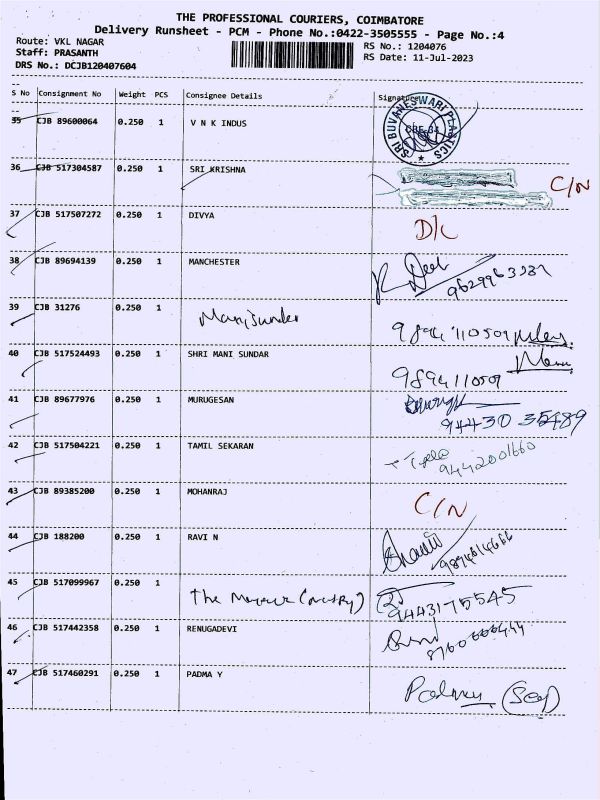 THE PROFESSIONAL COURIERS, COIMBATORE
Delivery Runsheet - PCM - Phone No.:0422-3505555 - Page No.:4
Route: VKL NAGAR
RS No.: 1204076
Staff: PRASANTH
RS Date: 11-Jul-2023
DRS No.: DCJB120407604
S No Consignment No Weight PCS Consignee Details Signature
35 CJB 89600064 0.250 1 V N K INDUS SRI BUVANESWARI PLASTICS
36 CJB 517304587 0.250 1 SRI KRISHNA C/N
37 CJB 517507272 0.250 1 DIVYA D/L
38 CJB 89694139 0.250 1 MANCHESTER
39 CJB 31276 0.250 1 Manisunder
40 CJB 517524493 0.250 1 SHRI MANI SUNDAR 9894110509
41 CJB 89677976 0.250 1 MURUGESAN 94430 35489
42 CJB 517504221 0.250 1 TAMIL SEKARAN 9442001660
43 CJB 89385200 0.250 1 MOHANRAJ C/N
44 CJB 188200 0.250 1 RAVI N
45 CJB 517099967 0.250 1 The 9443175545
46 CJB 517442358 0.250 1 RENUGADEVI
47 CJB 517460291 0.250 1 PADMA Y